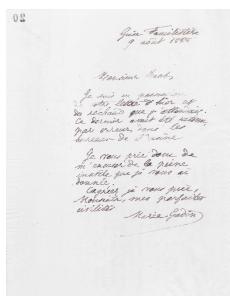 20
Guise Familistère
9 août 188
Monsieur
Je suis en possession
de votre lettre d'hier et
du réchaud que j'attendais.
Ce dernier avait été
par erreur dans les
bureaux de
Je vous prie donc de
m'excuser de la peine
inutile que je vous ai
donnée.
Agréez, je vous prie,
Monsieur, mes parfaites
civilités
Marie Godin